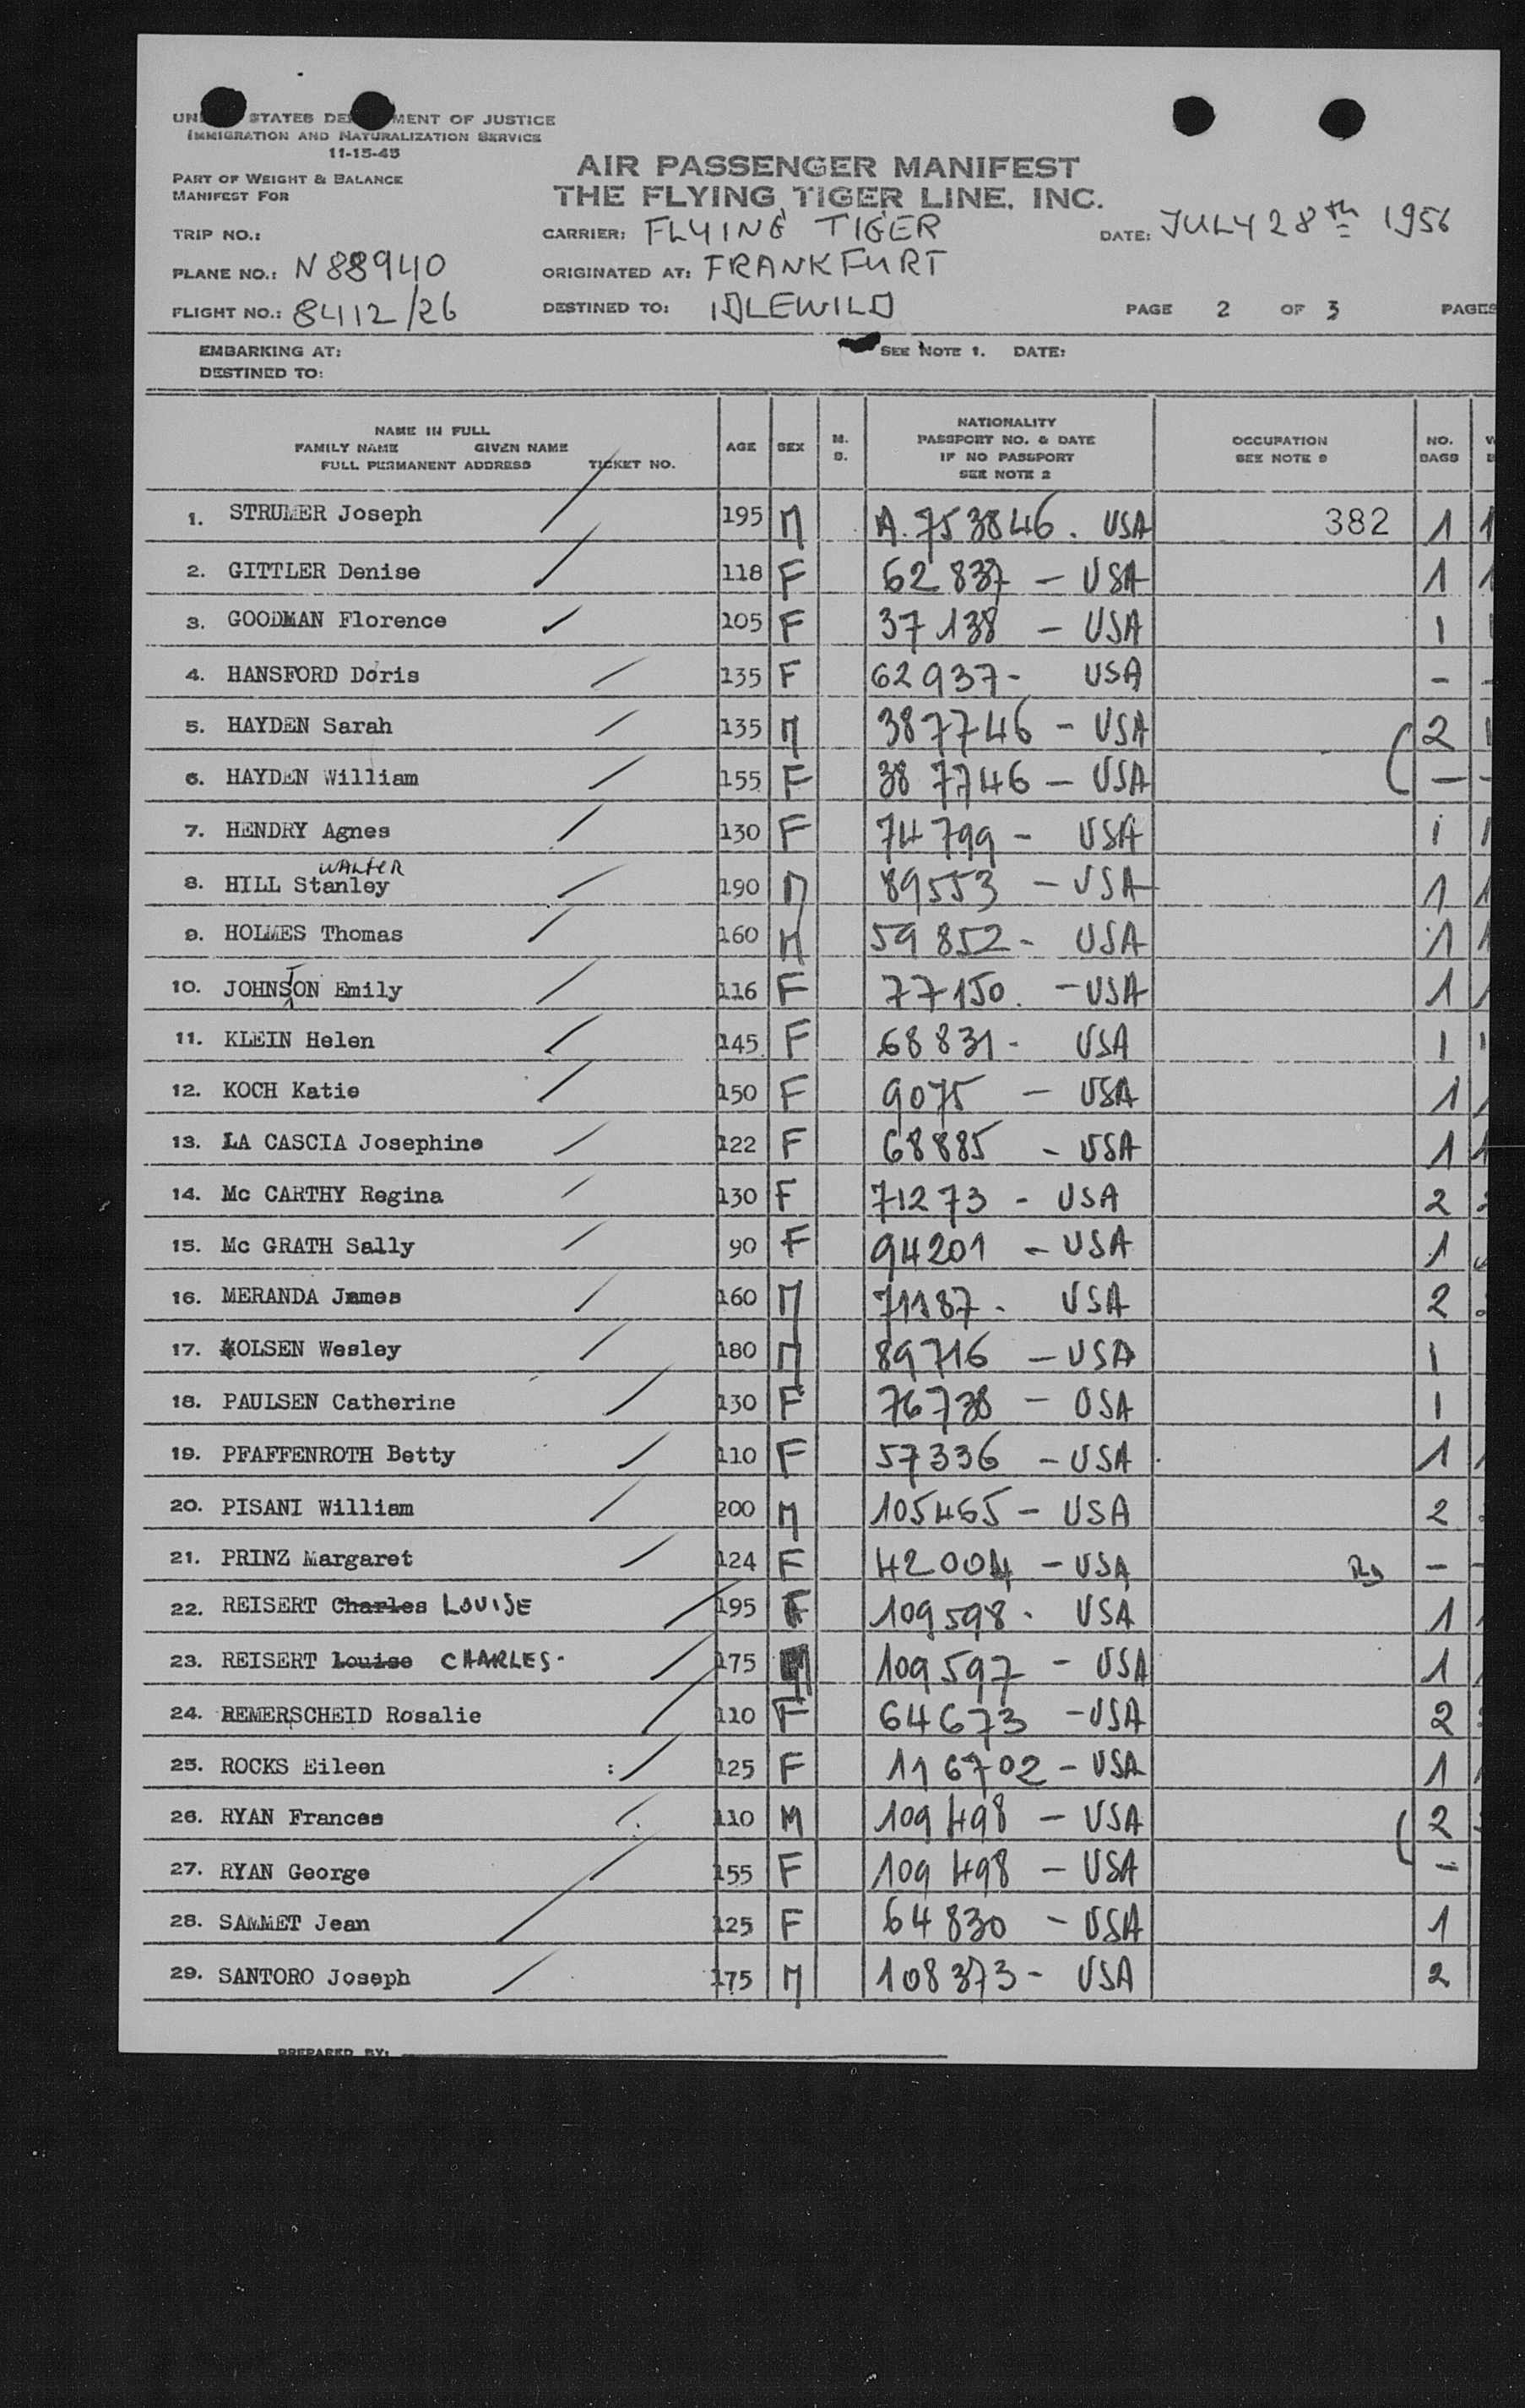 STATES DE MENT OF JUSTICE
IMMIGRATION AND NATURALIZATION SERVICE
11-15-45
PART OF WEIGHT & BALANCE
MANIFEST FOR
AIR PASSENGER MANIFEST
THE FLYING TIGER LINE, INC.
TRIP NO.: CARRIER: FLYING TIGER DATE: JULY 28th 1956
PLANE NO.: N88940 ORIGINATED AT: FRANKFURT
FLIGHT NO.: 8412/26 DESTINED TO: IDLEWILD PAGE 2 OF 3 PAGES
EMBARKING AT: SEE NOTE 1. DATE:
DESTINED TO:
NAME IN FULL
FAMILY NAME GIVEN NAME
FULL PERMANENT ADDRESS TICKET NO.
AGE SEX M. S.
NATIONALITY
PASSPORT NO. & DATE
IF NO PASSPORT
SEE NOTE 2
OCCUPATION
SEE NOTE 9
NO. BAGS
1. STRUMER Joseph 195 M A.753846. USA 382 1 1
2. GITTLER Denise 118 F 62837 - USA 1 1
3. GOODMAN Florence 105 F 37138 - USA 1 1
4. HANSFORD Doris 135 F 62937 - USA - -
5. HAYDEN Sarah 135 M 387746 - USA 2 1
6. HAYDEN William 155 F 387746 - USA - -
7. HENDRY Agnes 130 F 74799 - USA 1 1
WALTER
8. HILL Stanley 190 M 89553 - USA 1 1
9. HOLMES Thomas 160 M 59852 - USA 1 1
10. JOHNSTON Emily 116 F 77150. - USA 1 1
11. KLEIN Helen 145 F 68831 - USA 1 1
12. KOCH Katie 150 F 9075 - USA 1 1
13. LA CASCIA Josephine 122 F 68885 - USA 1 1
14. Mc CARTHY Regina 130 F 71273 - USA 2
15. Mc GRATH Sally 90 F 94201 - USA 1
16. MERANDA James 160 M 71187 - USA 2
17. OLSEN Wesley 180 M 89716 - USA 1
18. PAULSEN Catherine 130 F 76738 - USA 1
19. PFAFFENROTH Betty 110 F 57336 - USA 1
20. PISANI William 200 M 105465 - USA 2
21. PRINZ Margaret 124 F 42004 - USA - -
22. REISERT Charles LOUISE 195 F 109598 - USA 1 1
23. REISERT Louise CHARLES. 175 M 109597 - USA 1
24. REMERSCHEID Rosalie 110 F 64673 - USA 2
25. ROCKS Eileen 125 F 116702 - USA 1
26. RYAN Frances 110 M 109498 - USA 2
27. RYAN George 155 F 109498 - USA -
28. SAMMET Jean 125 F 64830 - USA 1
29. SANTORO Joseph 175 M 108373 - USA 2
PREPARED BY: